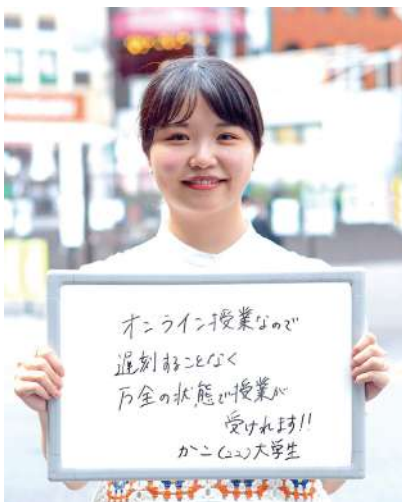 オンライン授業なので
遅刻することなく
万全の状態で授業が
受けれます!!
かこ(22)大学生